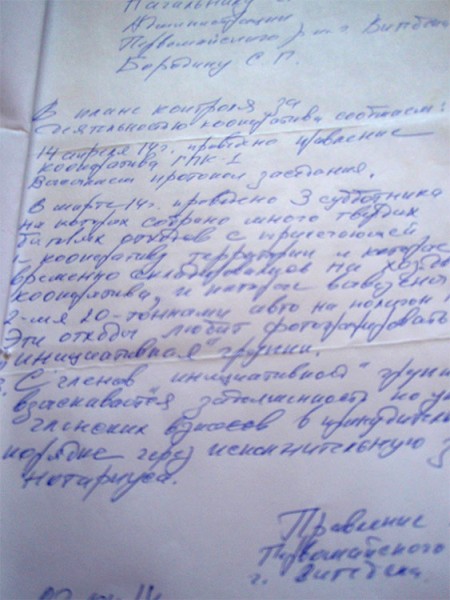 Начальнику
Администрации
Первомайского р-на г. Витебск
Бородину С.П.
В плане контроля за
деятельностью кооператива сообщаем:
14 апреля 14г. проведено правление
кооператива ГПК-1
Высылаем протокол заседания.
В марте 14г. проведено 3 субботника
на которых собрано много твердых
бытовых отходов с прилегающей
к кооперативу территории и которое
временно складировалось на
кооператива, и которое
2-мя 20-тонными авто на полигон
Эти отходы любит фотографировать
"инициативная" группа.
С членов "инициативной" групп
взыскивается задолженность по
членских взносов в принудитель
порядке через исполнительную
нотариуса.
Правление
Первомайского
г. Витебска